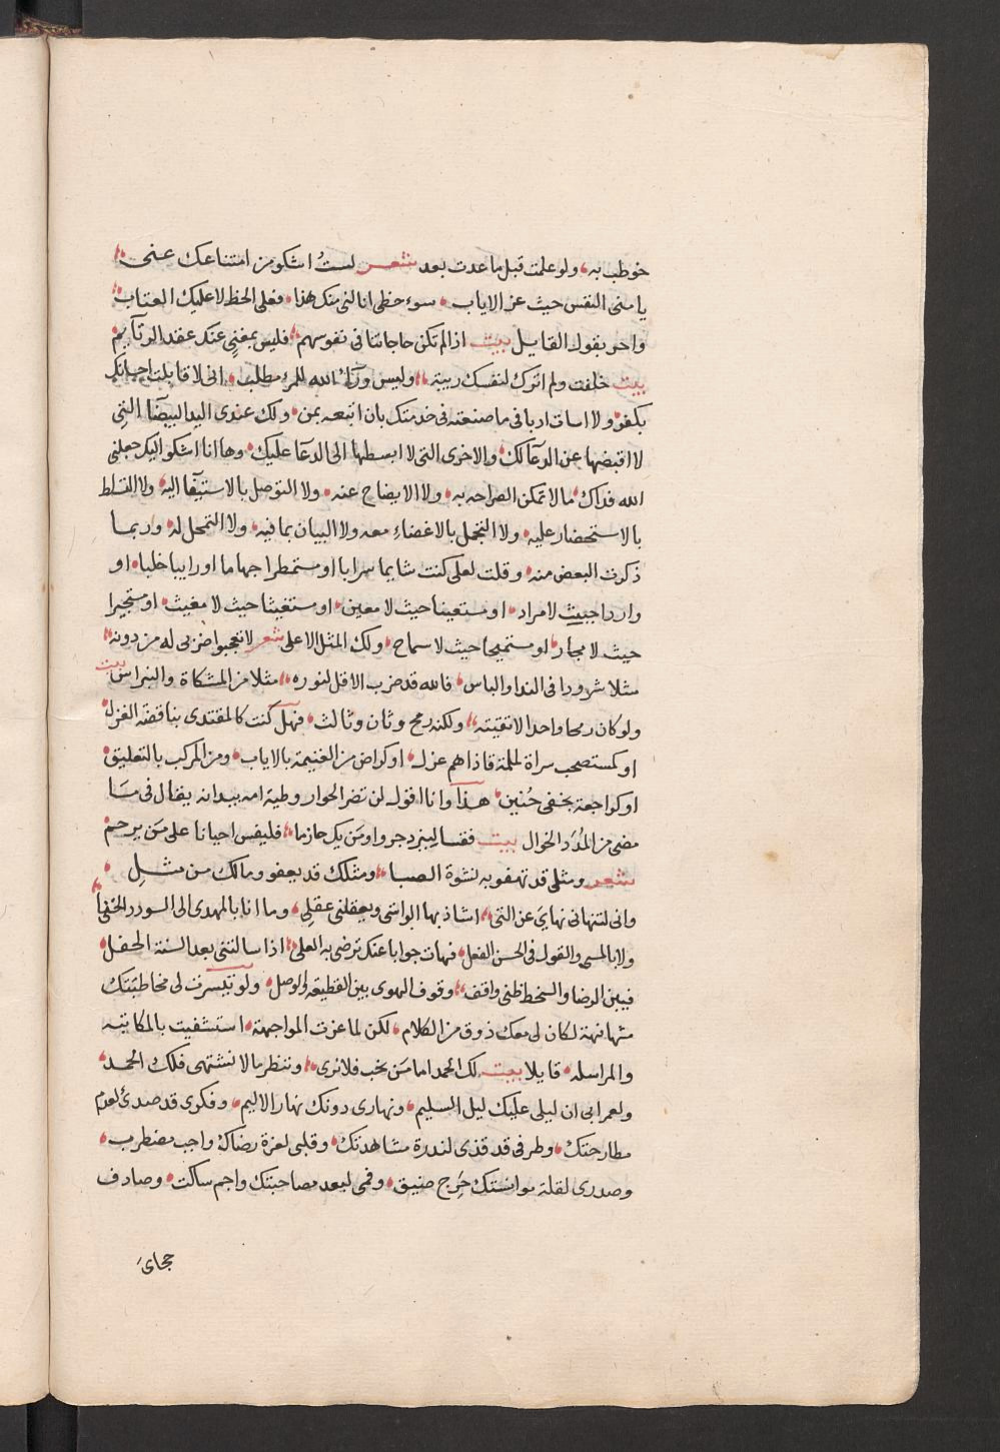 خوطب به، ولو علمت قبل ما عدت بعد شعر لستُ اشكو من امتناعك عنى
يا منى النفس حيث عز الاياب سوء حظى انا لنى منك هذا فعلى الحظ لا عليك العتاب
واخر يقول القايل بيت اذا لم تكن حاجاتنا فى نفوسهم فليس بمغنٍ عنك عقد الرتآيم
بيت حلفت ولم اترك لنفسك ريبة وليس ورآء الله للمرء مطلب انى لا قابلت احسانك
بكفر ولا اسات ادبا فى ما صنعته فى خدمتك بان اتبعه بمن ولك عندى اليد البيضآ التى
لا اقبضها عن الدعآ لك والاخرى التى لا ابسطها الى الدعآ عليك وها انا اشكو اليك جعلنى
الله فداك ما لا تمكن الصراحه به ولا الايضاح عنه ولا التوصل بالاستيفآ اليه ولا التسلط
بالاستحضار عليه ولا التجمل بالاغضاء معه ولا البيان بما فيه ولا التمحل له وربما
ذكرت البعض منه وقلت لعلى كنت شايما سرابا او مستمطرا جهاما او رايبا خلبا او
واردا حيث لا مراد او مستعينا حيث لا معين او مستغيثا حيث لا مغيث او مستجيرا
حيث لا مجار او مستميحا حيث لا سماح ولك المثل الاعلى شعر لا تعجبوا ضربى له من دونه
مثلا شرورا فى الندا والباس فالله قد ضرب الاقل لنوره مثلا من المشكاة والنبراس بيت
ولو كان رمحا واحدا لاتقيته ولكنه رمح وثان وثالث فهل كنت كالمقتدى بناقضة الغزل
او كمستصحب سراة لملمة فاذا هم عزل او كراض من الغنيمة بالاياب ومن المركب بالتعليق
او كراجعة بخفى حُنين هذا وانا اقول لن تضر الحوار وطية امه بيد انه يقال فى مسَا
مضى من المُدَد الخوال بيت فقسا ليزدجروا ومَن يك حازما فليقس احيانا على مَن يرحم
شعر ومثلى قد تهفو به نشوة الصبا ومثلك قد يعفو وما لك من مثلِ
وانى لتنهانى نهاىَ عن التى اشاد بها الواشى ويعقلنى عقلى وما انا بالمهدى الى السودد الخنا
ولا بالمسى والقول فى الحسن الفعل فهات جوابا عنك ترضى به العلى اذا سالتنى بعد السنة الحفل
فبين الرضا والسخط ظنى واقف وقوف الهوى بين القطيعة والوصل ولو تيسرت لى مخاطبتك
مشافهة لكان لى معك ذوق من الكلام لكن لما عزت المواجهة استشفيت بالمكاتبه
والمراسله قايلا بيت لك الحمد اما مَن نحب فلا نرى وننظر ما لا نشتهى فلك الحمد
ولعمرابى ان ليلى عليك ليل السليم ونهارى دونك نهار الاليم وفكرى قد صدئ لعدم
مطارحتك وطرفى قد قذى لندرة مشاهدتك وقلبى لعزة رضاك واجب مضطرب
وصدرى لقلة موانستك حَرِج ضيق وفمى لبعد مصاحبتك واجم ساكت وصادف
حجاىَ